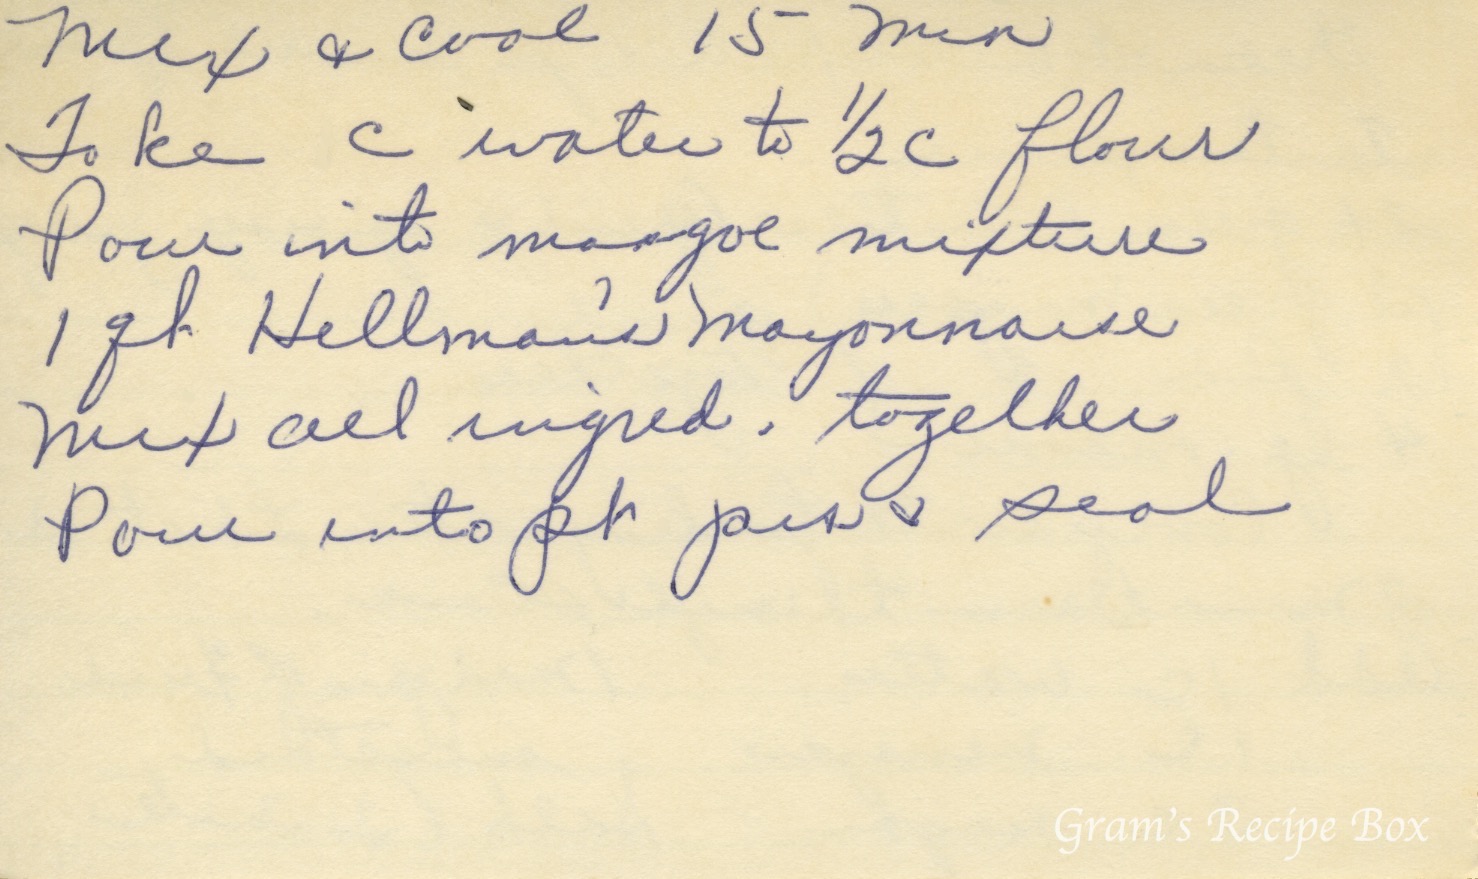 Mix & Cool 15 min
Take c water to 1/2 c flour
Pour into mangoe mixture
1 qt Hellman's Mayonnaise
Mix all ingred. together
Pour into pt jars & seal
Gram's Recipe Box